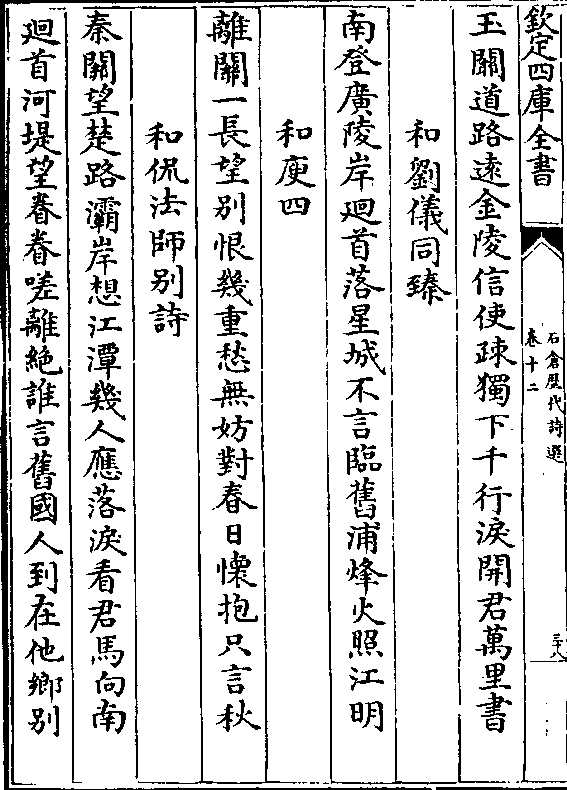 欽定四庫全書
石倉歴代詩選
卷十二
三十八
玉關道路遠金陵信使疎獨下千行淚開君萬里書
和劉儀同臻
南登廣陵岸廻首落星城不言臨舊浦烽火照江明
和庾四
離關一長望别恨幾重愁無妨對春日懐抱只言秋
和侃法師别詩
秦關望楚路灞岸想江潭幾人應落淚看君馬向南
廻首河堤望眷眷嗟離絶誰言舊國人到在他鄉别